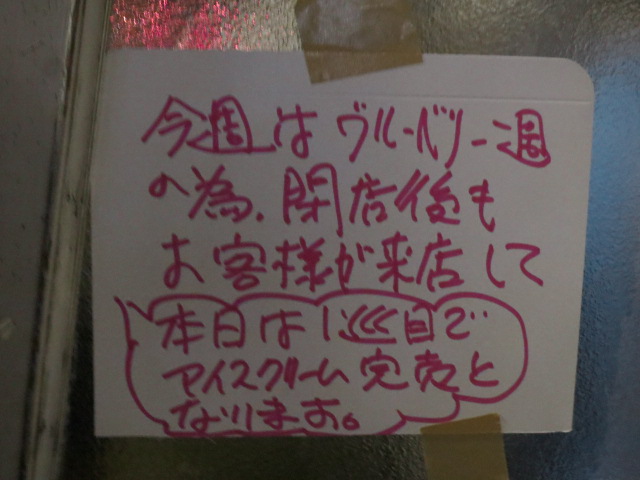 今週はブルーベリー週
の為、閉店後も
お客様が来店して
本日は1巡目で
アイスクリーム完売と
なります。